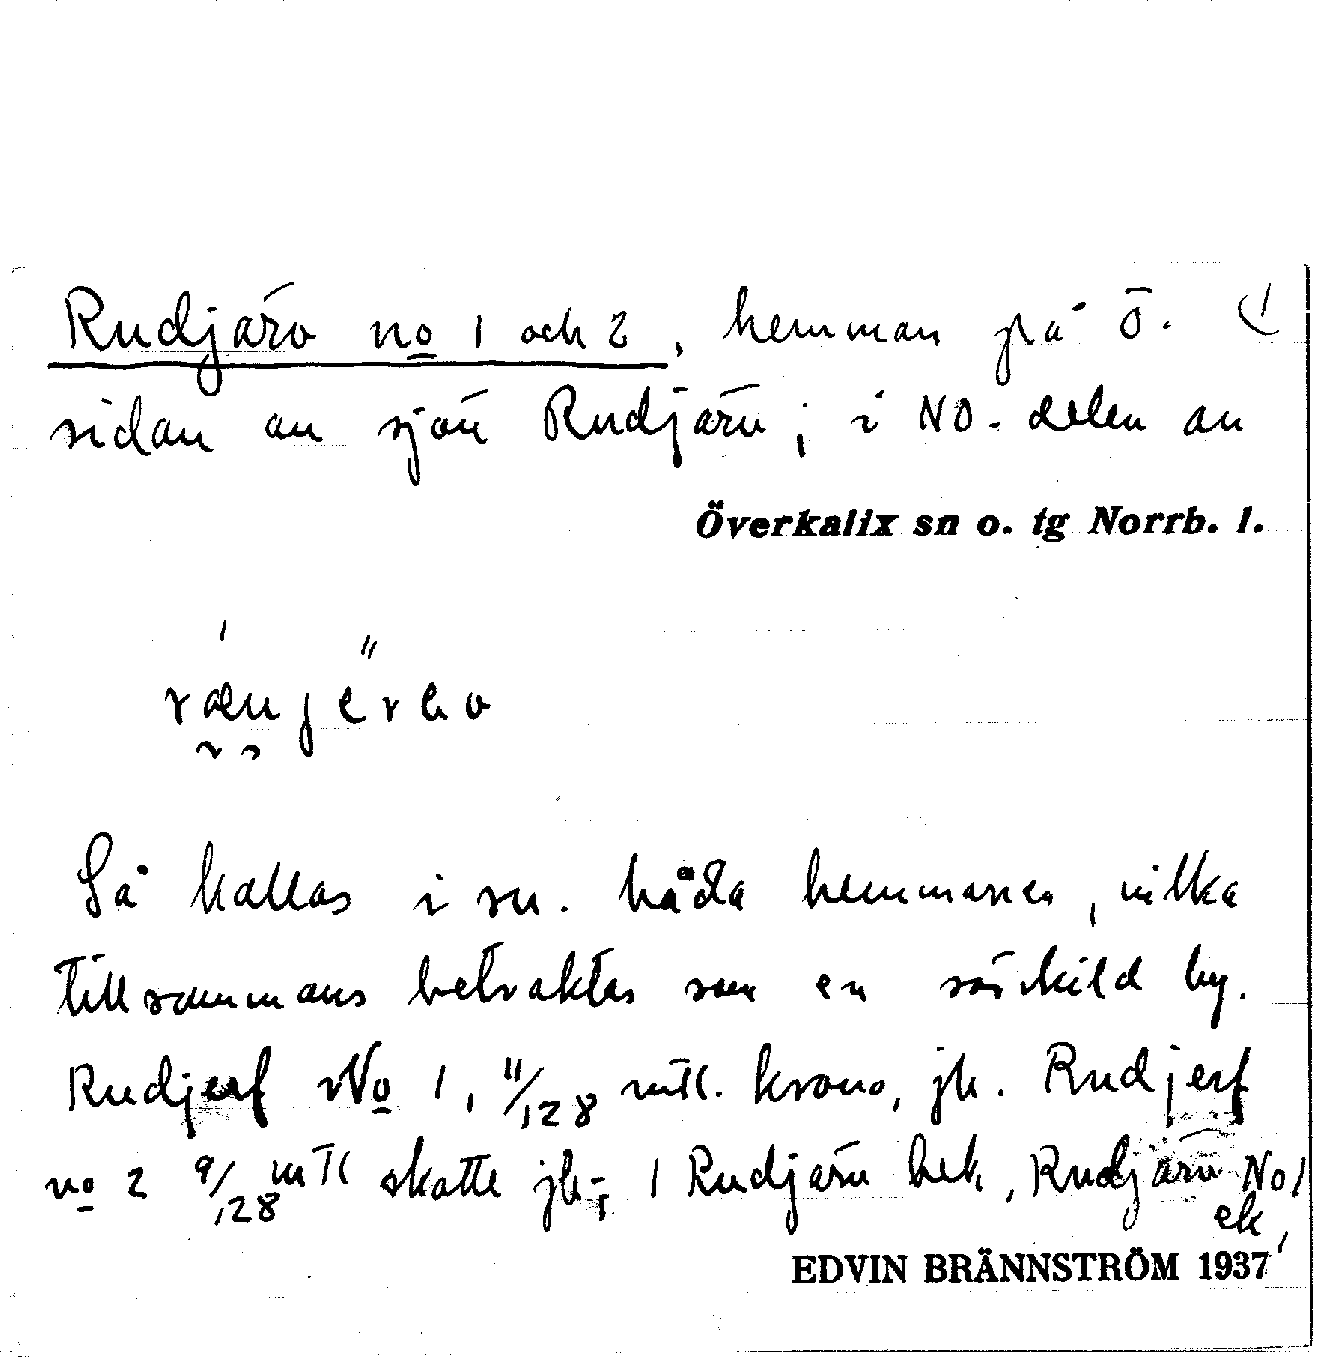 Rudjärv no 1 och 2, hemman på Ö.
sidan av sjön Rudjärv; i NO. delen av
Överkalix sn o. tg Norrb. l.
Så kallas i sn. båda hemmanen, vilka
tillsammans betraktas som en särskild by.
Rudjerf No 1, 11/128 mtl. krono, jb. Rudjerf
no 2 9/128 mtl skatte jb; 1 Rudjärv hek, Rudjärv No 1
ek,
EDVIN BRÄNNSTRÖM 1937